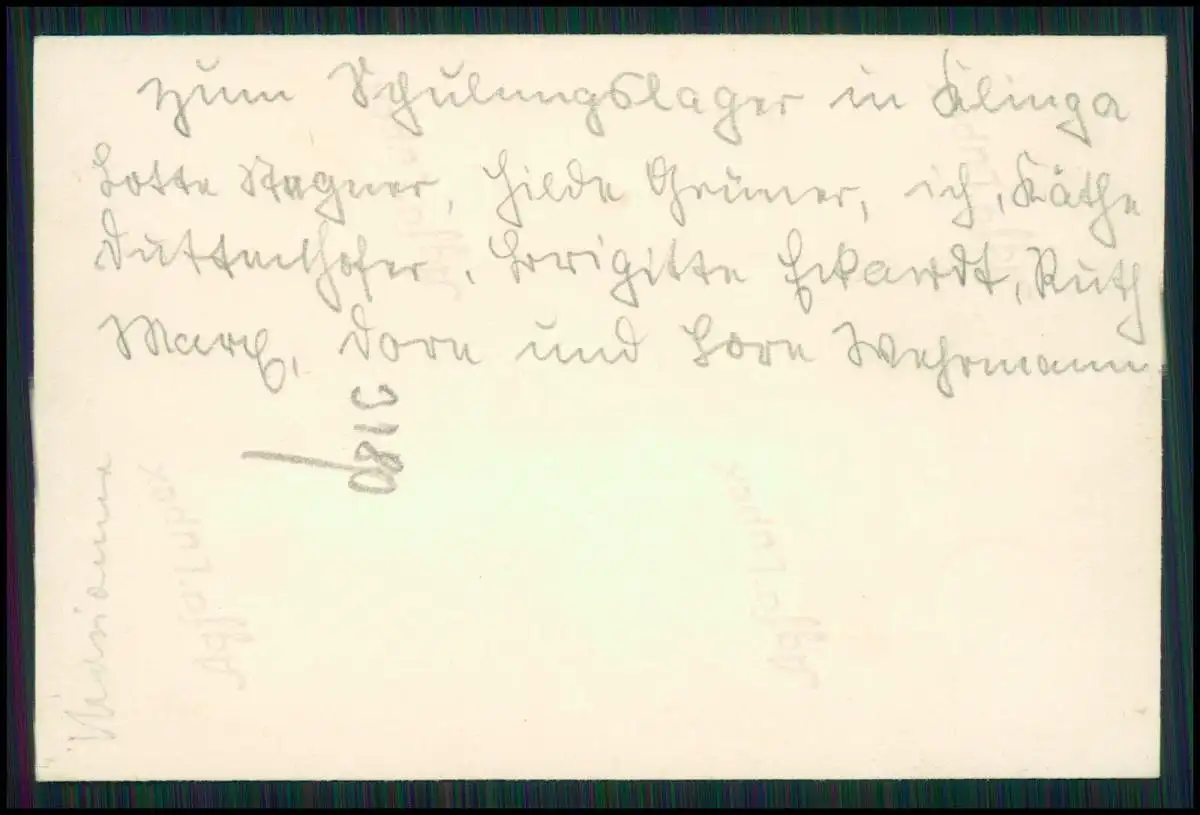 zum Schulungslager in Klinga
Lotte Wagner, Hilde Grüner, ich, Käthe
Duttenhofer, Brigitte Eckardt, Ruth
March, Dore und Lore Wehrmann.
0810
Marianne
Agfa-Lupex
Agfa-Lupex